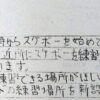 時からスケボーを始めて
所にスケボーを練習
ます。
練習できる場所がほしい
の練習場所を新設